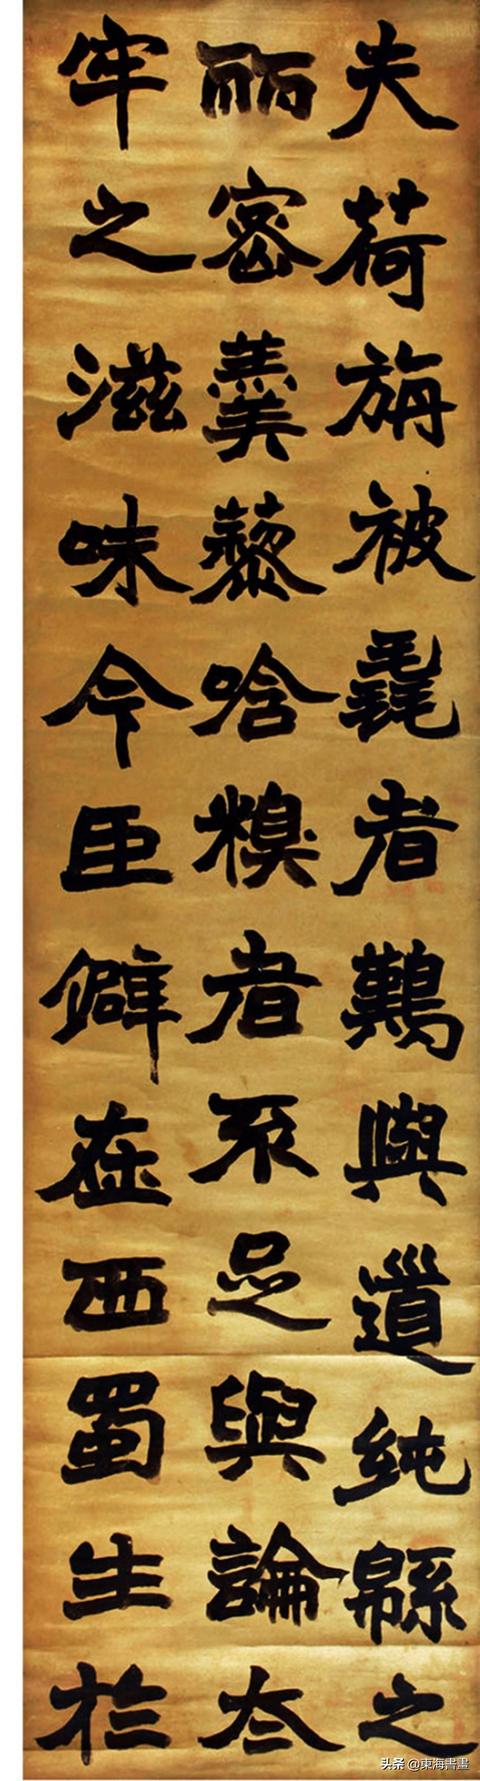 夫荷旃被毳者難與道純緜之
丽密羹藜唅糗者不足與論夳
牢之滋味今臣僻在西蜀生於
头条 @東海書畫